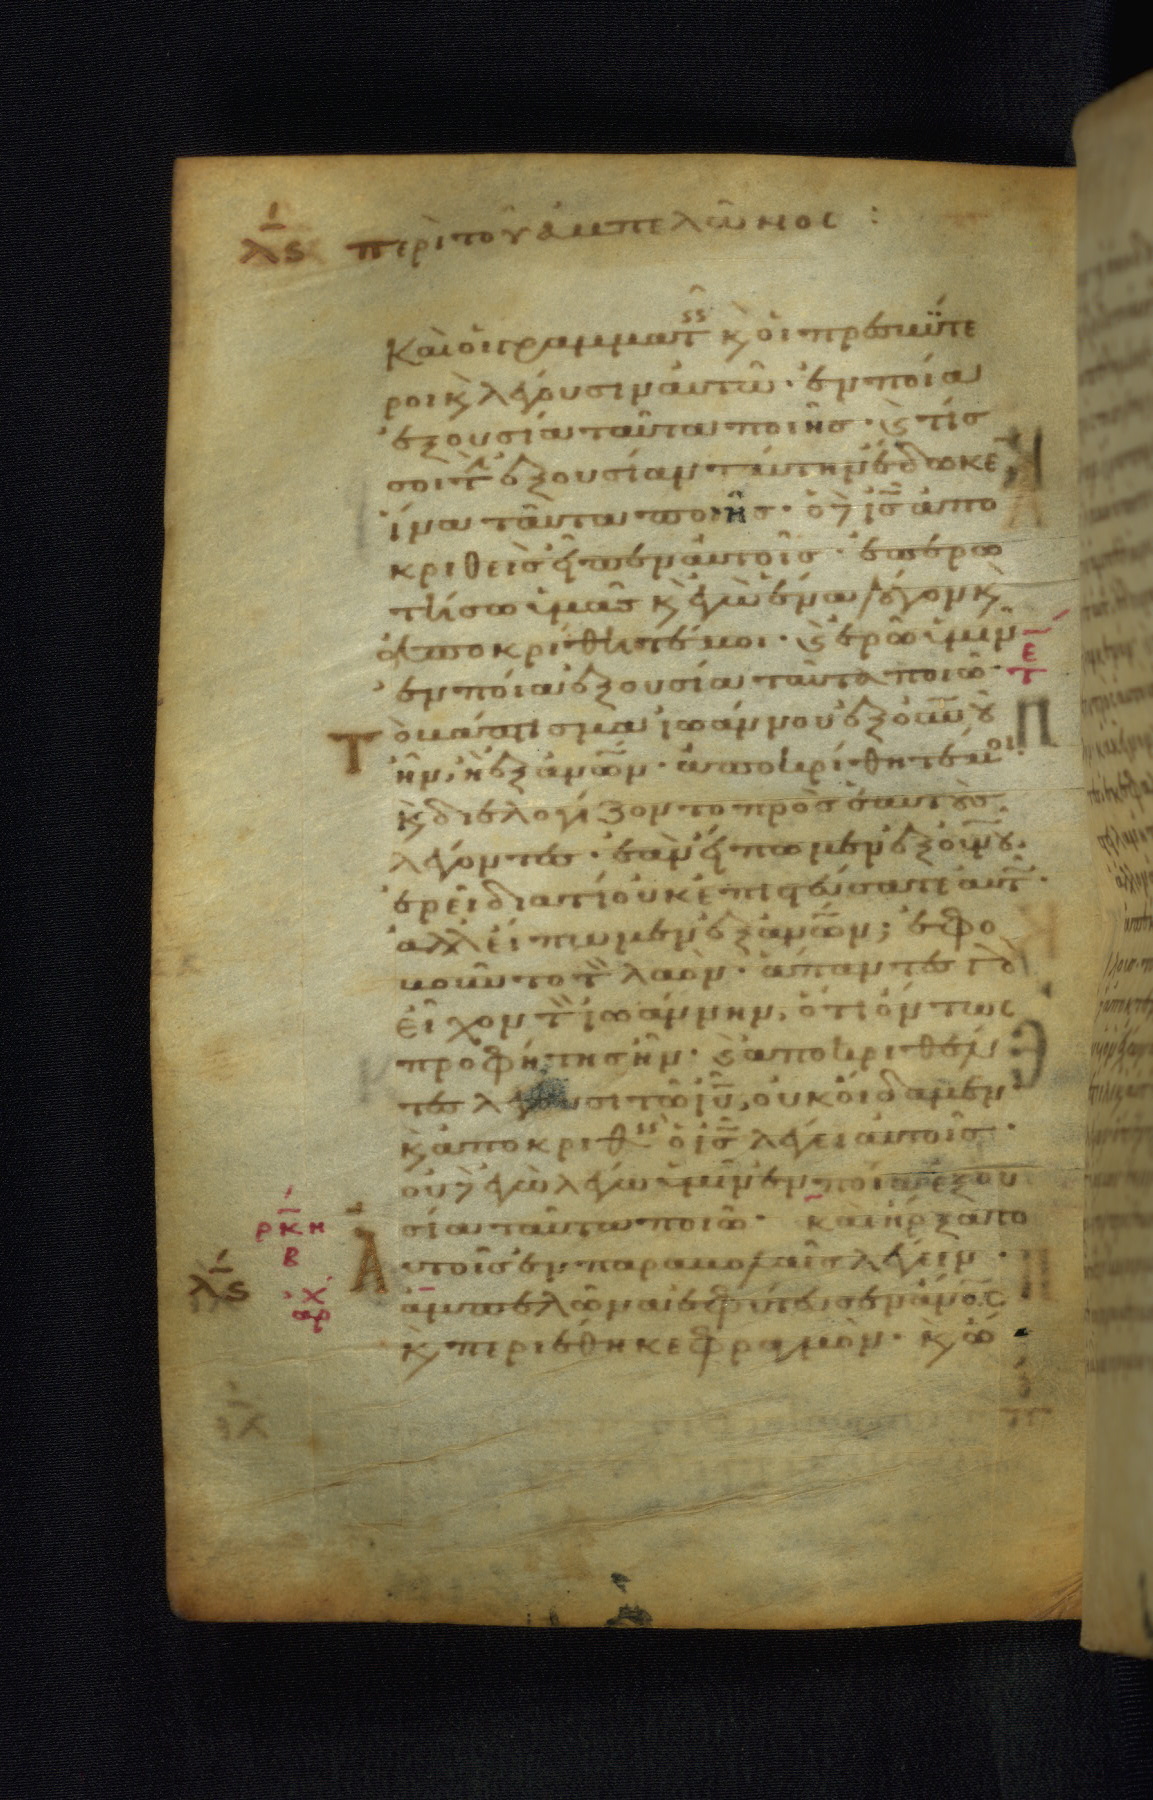 λς περὶ τοῦ ἀμπελῶνος :
Καὶ οἱ γραμματ κ̀ οἱ πρεσβύτε
ροι κ̀ λέγουσιν αὐτῶ · ἐν ποία
ἐξουσία ταῦτα ποιῆσ · κ̀ τίσ
σοι τ̀ ἐξουσίαν ταύτην ἔδωκε̅
ἵνα ταῦτα ποιῆσ · ὁ δ̀ ι̅σ̅ ἀπο
κριθεὶσ εἶπεν αὐτοῖσ · ἐπερω
τήσω ὑμᾶσ κ̀ ἐγὼ ἕνα λόγον κ̀
ἀποκρίθητέ μοι · κ̀ ἐρῶ ὑμῖν
ἐν ποία ἐξουσία ταῦτα ποιῶ ·
Τὸ βάπτισμα ἰωάννου ἐξ ο̅υ̅ν̅ο̅υ̅
ἦν, ἢ ἐξ α̅ν̅ω̅ν · ἀποκρίθητέ μοι.
κ̀ διελογίζοντο πρὸσ ἑαυτοὺσ
λέγοντεσ · ἐὰν εἴπωμεν ἐξ ο̅υ̅ν̅ο̅υ̅.
ἐρεῖ διατί οὐκ ἐπιστεύσατε αὐτ ·
ἀλλ εἴπωμεν ἐξ α̅ν̅ω̅ν; ἐφο
βοῦντο τ̀ λαόν · ἅπαντεσ γὰρ
εἶχον τ̀ ἰωάννην, ὅτι ὄντωσ
προφήτησ ἦν · κ̀ ἀποκριθέν
τεσ λέγουσι τῶ ι̅υ̅, οὐκ οἴδαμεν
κ̀ ἀποκριθ ὁ ι̅σ̅ λέγει αὐτοῖσ ·
οὐδ̀ ἐγὼ λέγω ὑμῖν ἐν ποία ἐξου
σία ταῦτα ποιῶ · καὶ ἤρξατο
Αὐτοῖσ ἐν παραβολαῖσ λέγειν ·
ἀμπελῶνα ἐφύτευσεν α̅ν̅ο̅σ̅
κ̀ περιέθηκε φραγμὸν · κ̀ ὤ
ε̅
τ
ρκη
β
λς
αρχ